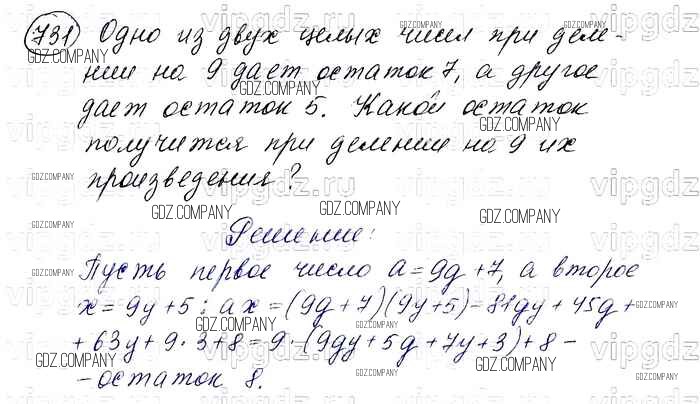 731 Одно из двух целых чисел при деле-
нии на 9 дает остаток 7, а другое
дает остаток 5. Какой остаток
получится при делении на 9 их
произведения?
Решение:
Пусть первое число a=9g+7, а второе
x=9y+5; ax=(9g+7)(9y+5)=81gy+45g+
+63y+9·3+8=9·(9gy+5g+7y+3)+8-
-остаток 8.